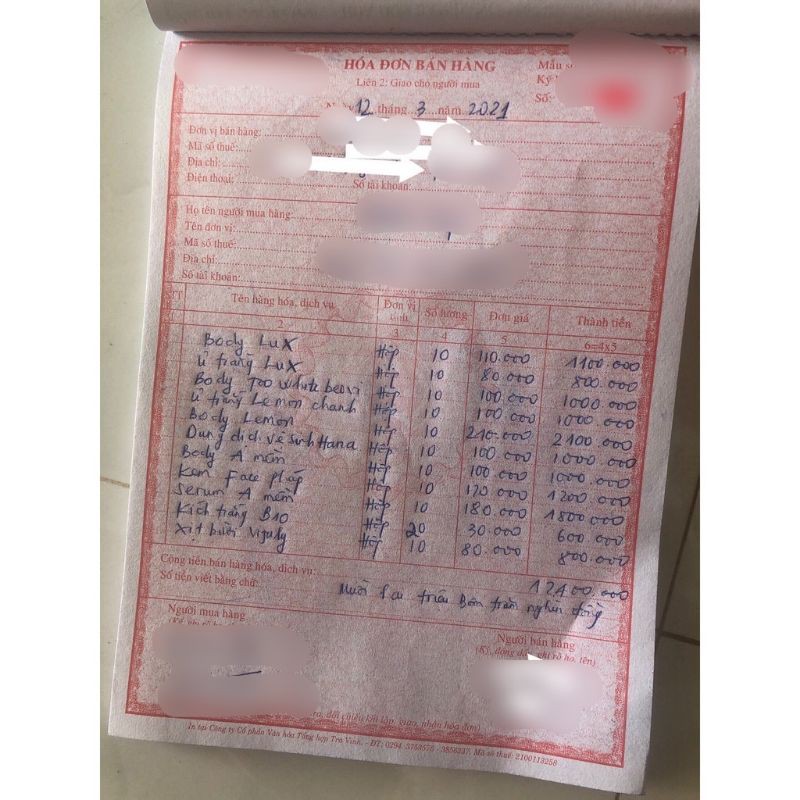 HÓA ĐƠN BÁN HÀNG
Liên 2: Giao cho người mua
Mẫu số
Số:
Ngày 12 tháng 3 năm 2021
Đơn vị bán hàng:
Mã số thuế:
Địa chỉ:
Điện thoại: Số tài khoản:
Họ tên người mua hàng:
Tên đơn vị:
Mã số thuế:
Địa chỉ:
Số tài khoản:
STT Tên hàng hóa, dịch vụ Đơn vị tính Số lượng Đơn giá Thành tiền
2 3 4 5 6=4x5
Body Lux Hộp 10 110.000 1100.000
ủ trắng Lux Hộp 10 80.000 800.000
Body white Hộp 10 100.000 1000.000
ủ trắng Lemon chanh Hộp 10 100.000 1000.000
Body Lemon Hộp 10 210.000 2100.000
Dung dịch vệ sinh Hana Hộp 10 100.000 1.000.000
Body A mềm Hộp 10 100.000 1000.000
Kem Face pháp Hộp 10 120.000 1200.000
Serum A mềm Hộp 10 180.000 1800.000
Kích trắng B10 Hộp 20 30.000 600.000
Xịt bưởi Hộp 10 80.000 800.000
Cộng tiền bán hàng hóa, dịch vụ: 12400.000
Số tiền viết bằng chữ: Mười hai triệu Bốn trăm nghìn đồng
Người mua hàng Người bán hàng
(Ký, đóng dấu, ghi rõ họ, tên)
đối chiếu khi lập, giao, nhận hóa đơn)
In tại Công ty Cổ phần Văn hóa Tổng hợp Trà Vinh. - ĐT: 0294. 3753576 - 3858237. Mã số thuế: 2100113256